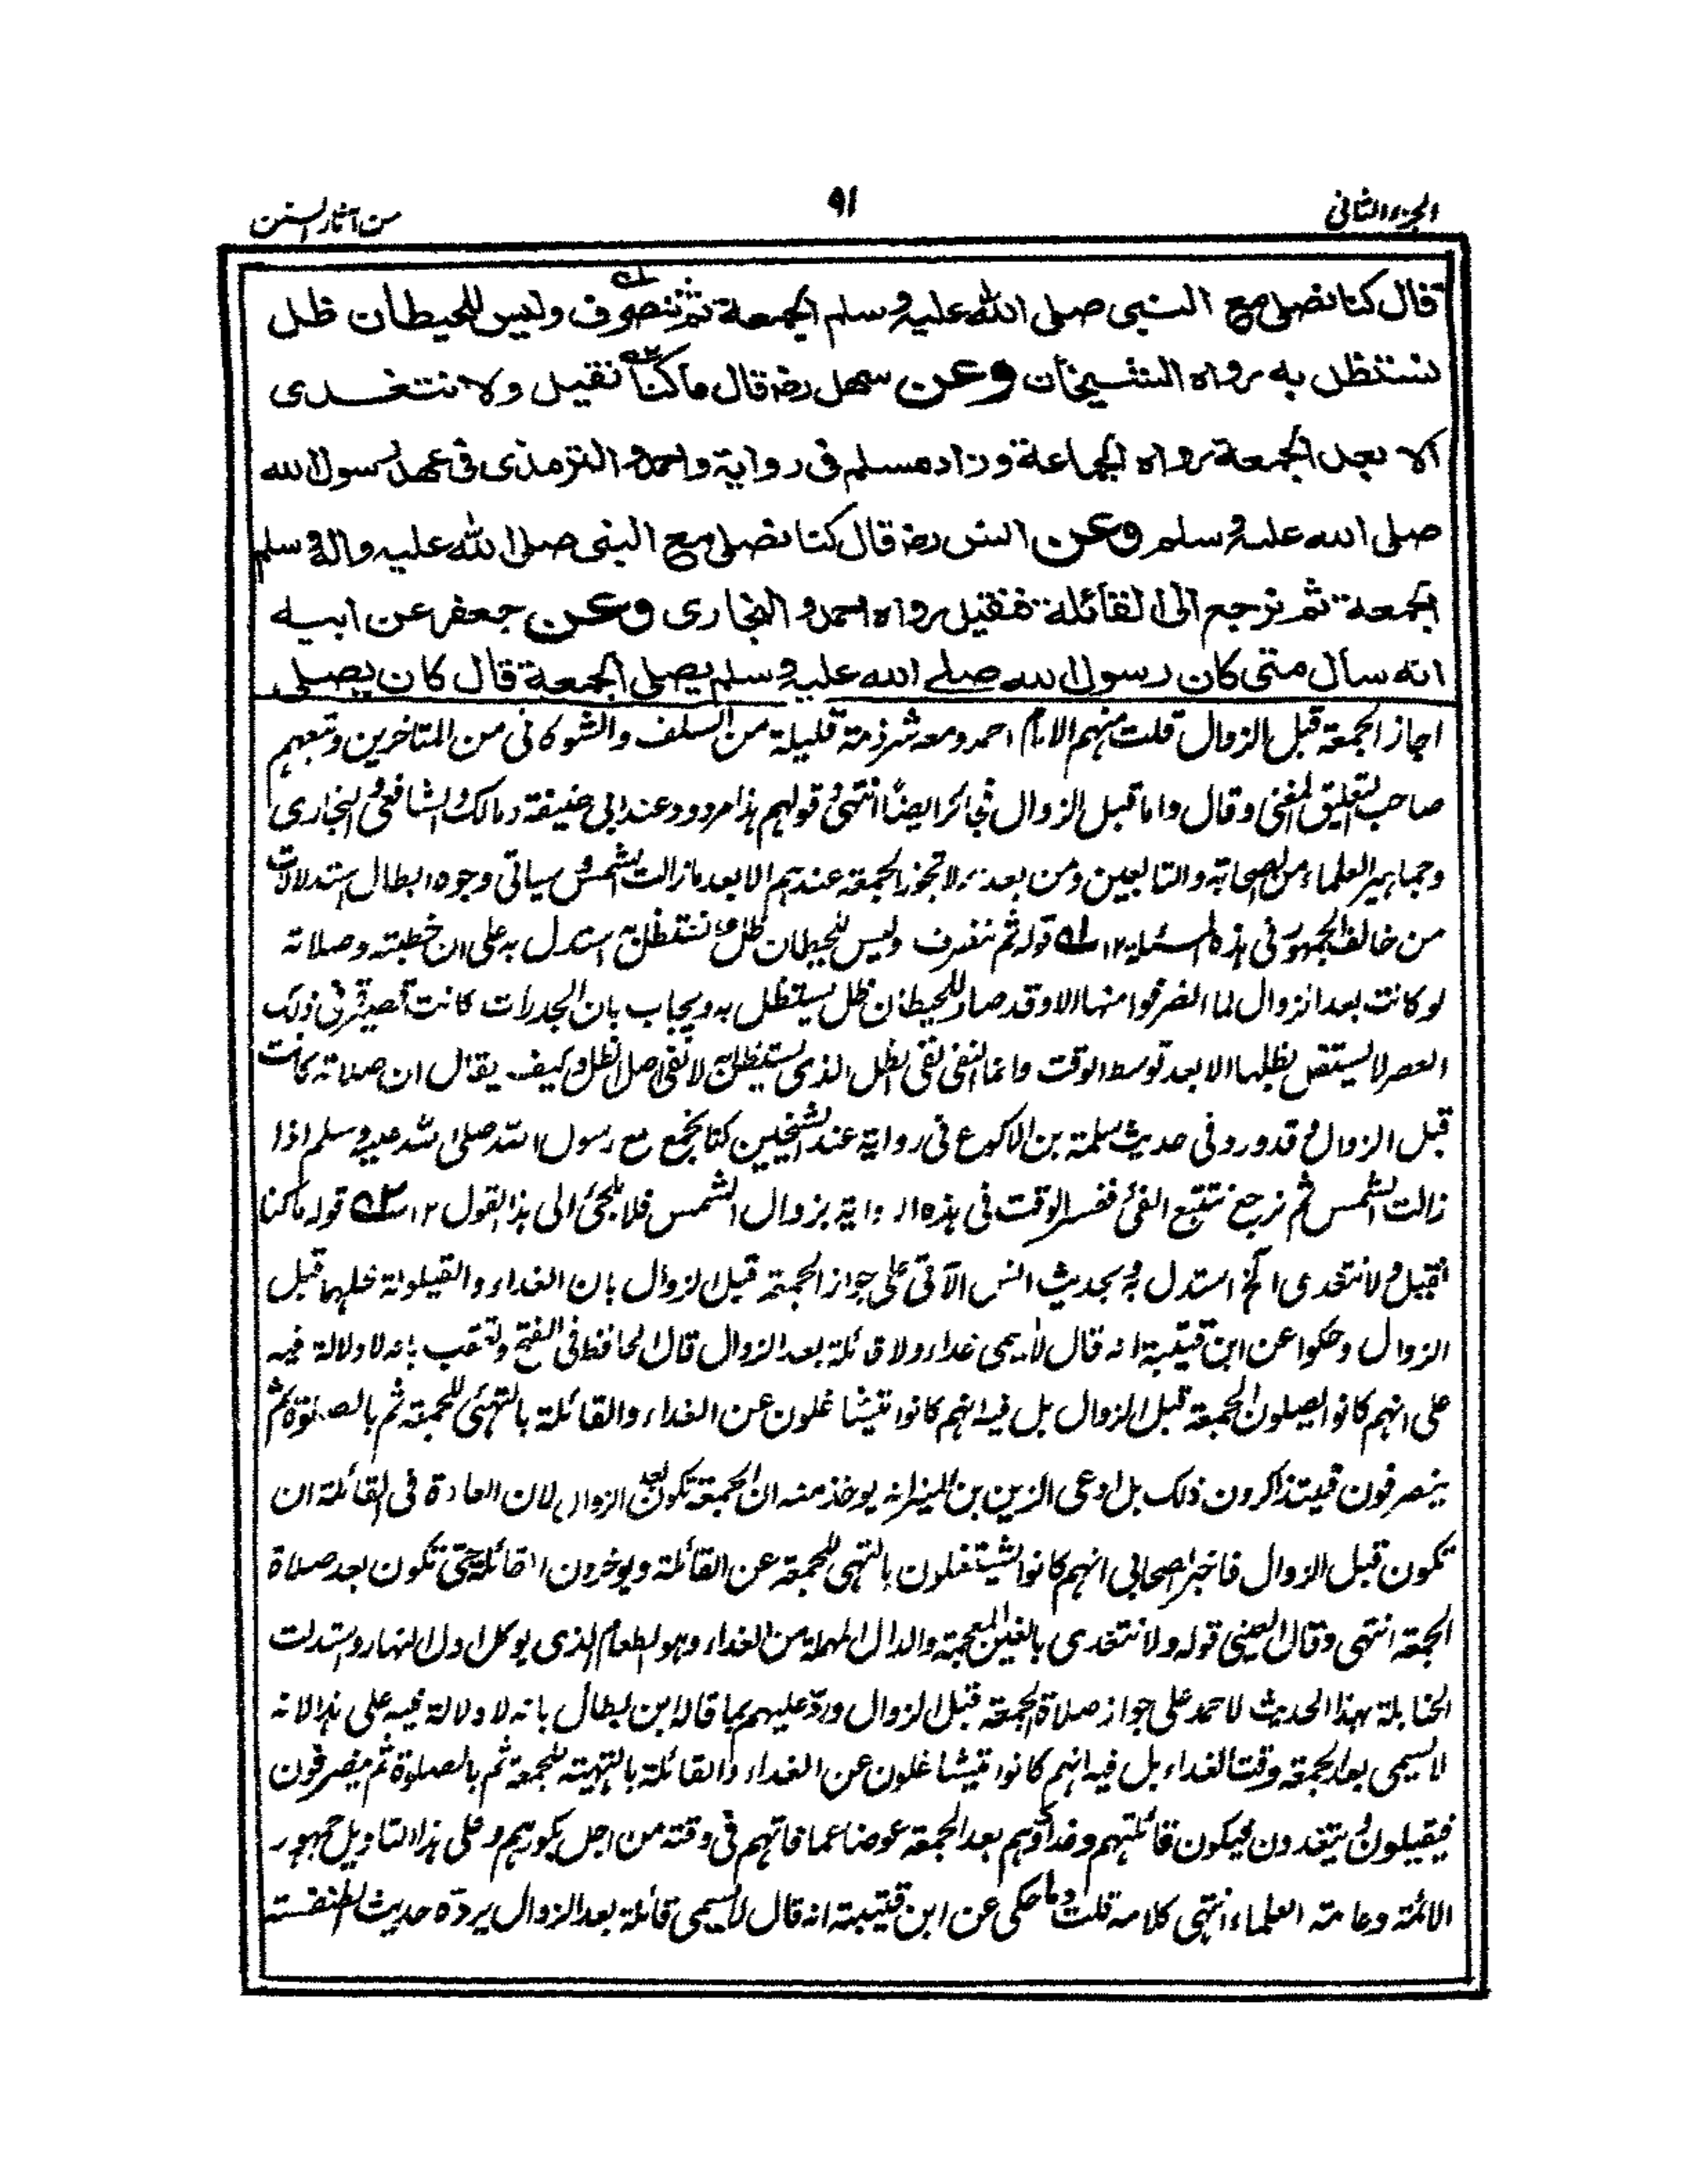 الجزء الثانی
۹۱
من آثار السنن
قال كنا نصلى مع النبى صلى الله عليه وسلم الجمعة ثم ننصرف وليس للحيطان ظل
نستظل به رواه الشيخان وعن سهل رضه قال ما كنا نقيل ولا نتغدى
الا بعد الجمعة رواه الجماعة وزاد مسلم فى رواية واحمد والترمذى فى عهد رسول الله
صلى الله عليه وسلم وعن انس رضه قال كنا نصلى مع النبى صلى الله عليه واله وسلم
الجمعة ثم نرجع الى القائلة فنقيل رواه احمد والبخارى وعن جعفر عن ابيه
انه سأل متى كان رسول الله صلے الله عليه وسلم يصلى الجمعة قال كان يصلى
اجاز الجمعة قبل الزوال قلت منهم الامام احمد ومعه شرذمة قليلة من السلف والشوكانى من المتاخرين وتبعهم
صاحب التعليق المغنى وقال واما قبل الزوال فجائز ايضا انتهى وقولهم هذا مردود عند ابى حنيفة ومالك والشافعى والبخارى
وجماهير العلماء من الصحابة والتابعين ومن بعدهم لا تجوز الجمعة عندهم الا بعد ما زالت الشمس وسياتى وجوه ابطال استدلالات
من خالف الجمهور فى هذه المسئلة ۱۲ ؎۱ قوله ثم ننصرف وليس للحيطان ظل نستظل به استدل به على ان خطبته وصلاته
لو كانت بعد الزوال لما انصرفوا منها الا وقد صار للحيطان ظل يستظل به ويجاب بان الجدرات كانت قصيرة فى ذلك
العصر لا يستظل بظلها الا بعد توسط الوقت وانما النفى نفى الظل الذى يستظل به لا نفى اصل الظل وكيف يقال ان صلاته كانت
قبل الزوال وقد ورد فى حديث سلمة بن الاكوع فى رواية عند الشيخين كنا نجمع مع رسول الله صلى الله عليه وسلم اذا
زالت الشمس ثم نرجع نتتبع الفئ ففسر الوقت فى هذه الرواية بزوال الشمس فلا يلجئ الى هذا القول ۱۲ ؎۲ قوله ما كنا
نقيل ولا نتغدى الخ استدل به وبحديث انس الآتى على جواز الجمعة قبل الزوال بان الغداء والقيلولة محلهما قبل
الزوال وحكوا عن ابن قتيبة انه قال لا يسمى غداء ولا قائلة بعد الزوال قال الحافظ فى الفتح وتعقب بانه لا دلالة فيه
على انهم كانوا يصلون الجمعة قبل الزوال بل فيه انهم كانوا يتشاغلون عن الغداء والقائلة بالتهئ للجمعة ثم بالصلوة ثم
ينصرفون فيتذاكرون ذلك بل ادعى الزين بن المنير انه يوخذ منه ان الجمعة تكون بعد الزوال لان العادة فى القائلة ان
تكون قبل الزوال فاخبر الصحابى انهم كانوا يشتغلون بالتهى للجمعة عن القائلة ويوخرون القائلة حتى تكون بعد صلاة
الجمعة انتهى وقال العينى قوله ولا نتغدى بالغين المعجمة والدال المهملة من الغداء وهو الطعام الذى يوكل اول النهار واستدلت
الحنابلة بهذا الحديث لاحمد على جواز صلاة الجمعة قبل الزوال ورد عليهم بما قاله ابن بطال بانه لا دلالة فيه على هذا لانه
لا يسمى بعد الجمعة وقت الغداء بل فيه انهم كانوا يتشاغلون عن الغداء والقائلة بالتهيئة للجمعة ثم بالصلوة ثم ينصرفون
فيقيلون ويتغدون فيكون قائلتهم وغداؤهم بعد الجمعة عوضا عما فاتهم فى وقته من اجل بكورهم وعلى هذا التاويل جمهور
الائمة وعامة العلماء انتهى كلامه قلت وما حكى عن ابن قتيبة انه قال لا يسمى قائلة بعد الزوال يردّه حديث الطنفسة